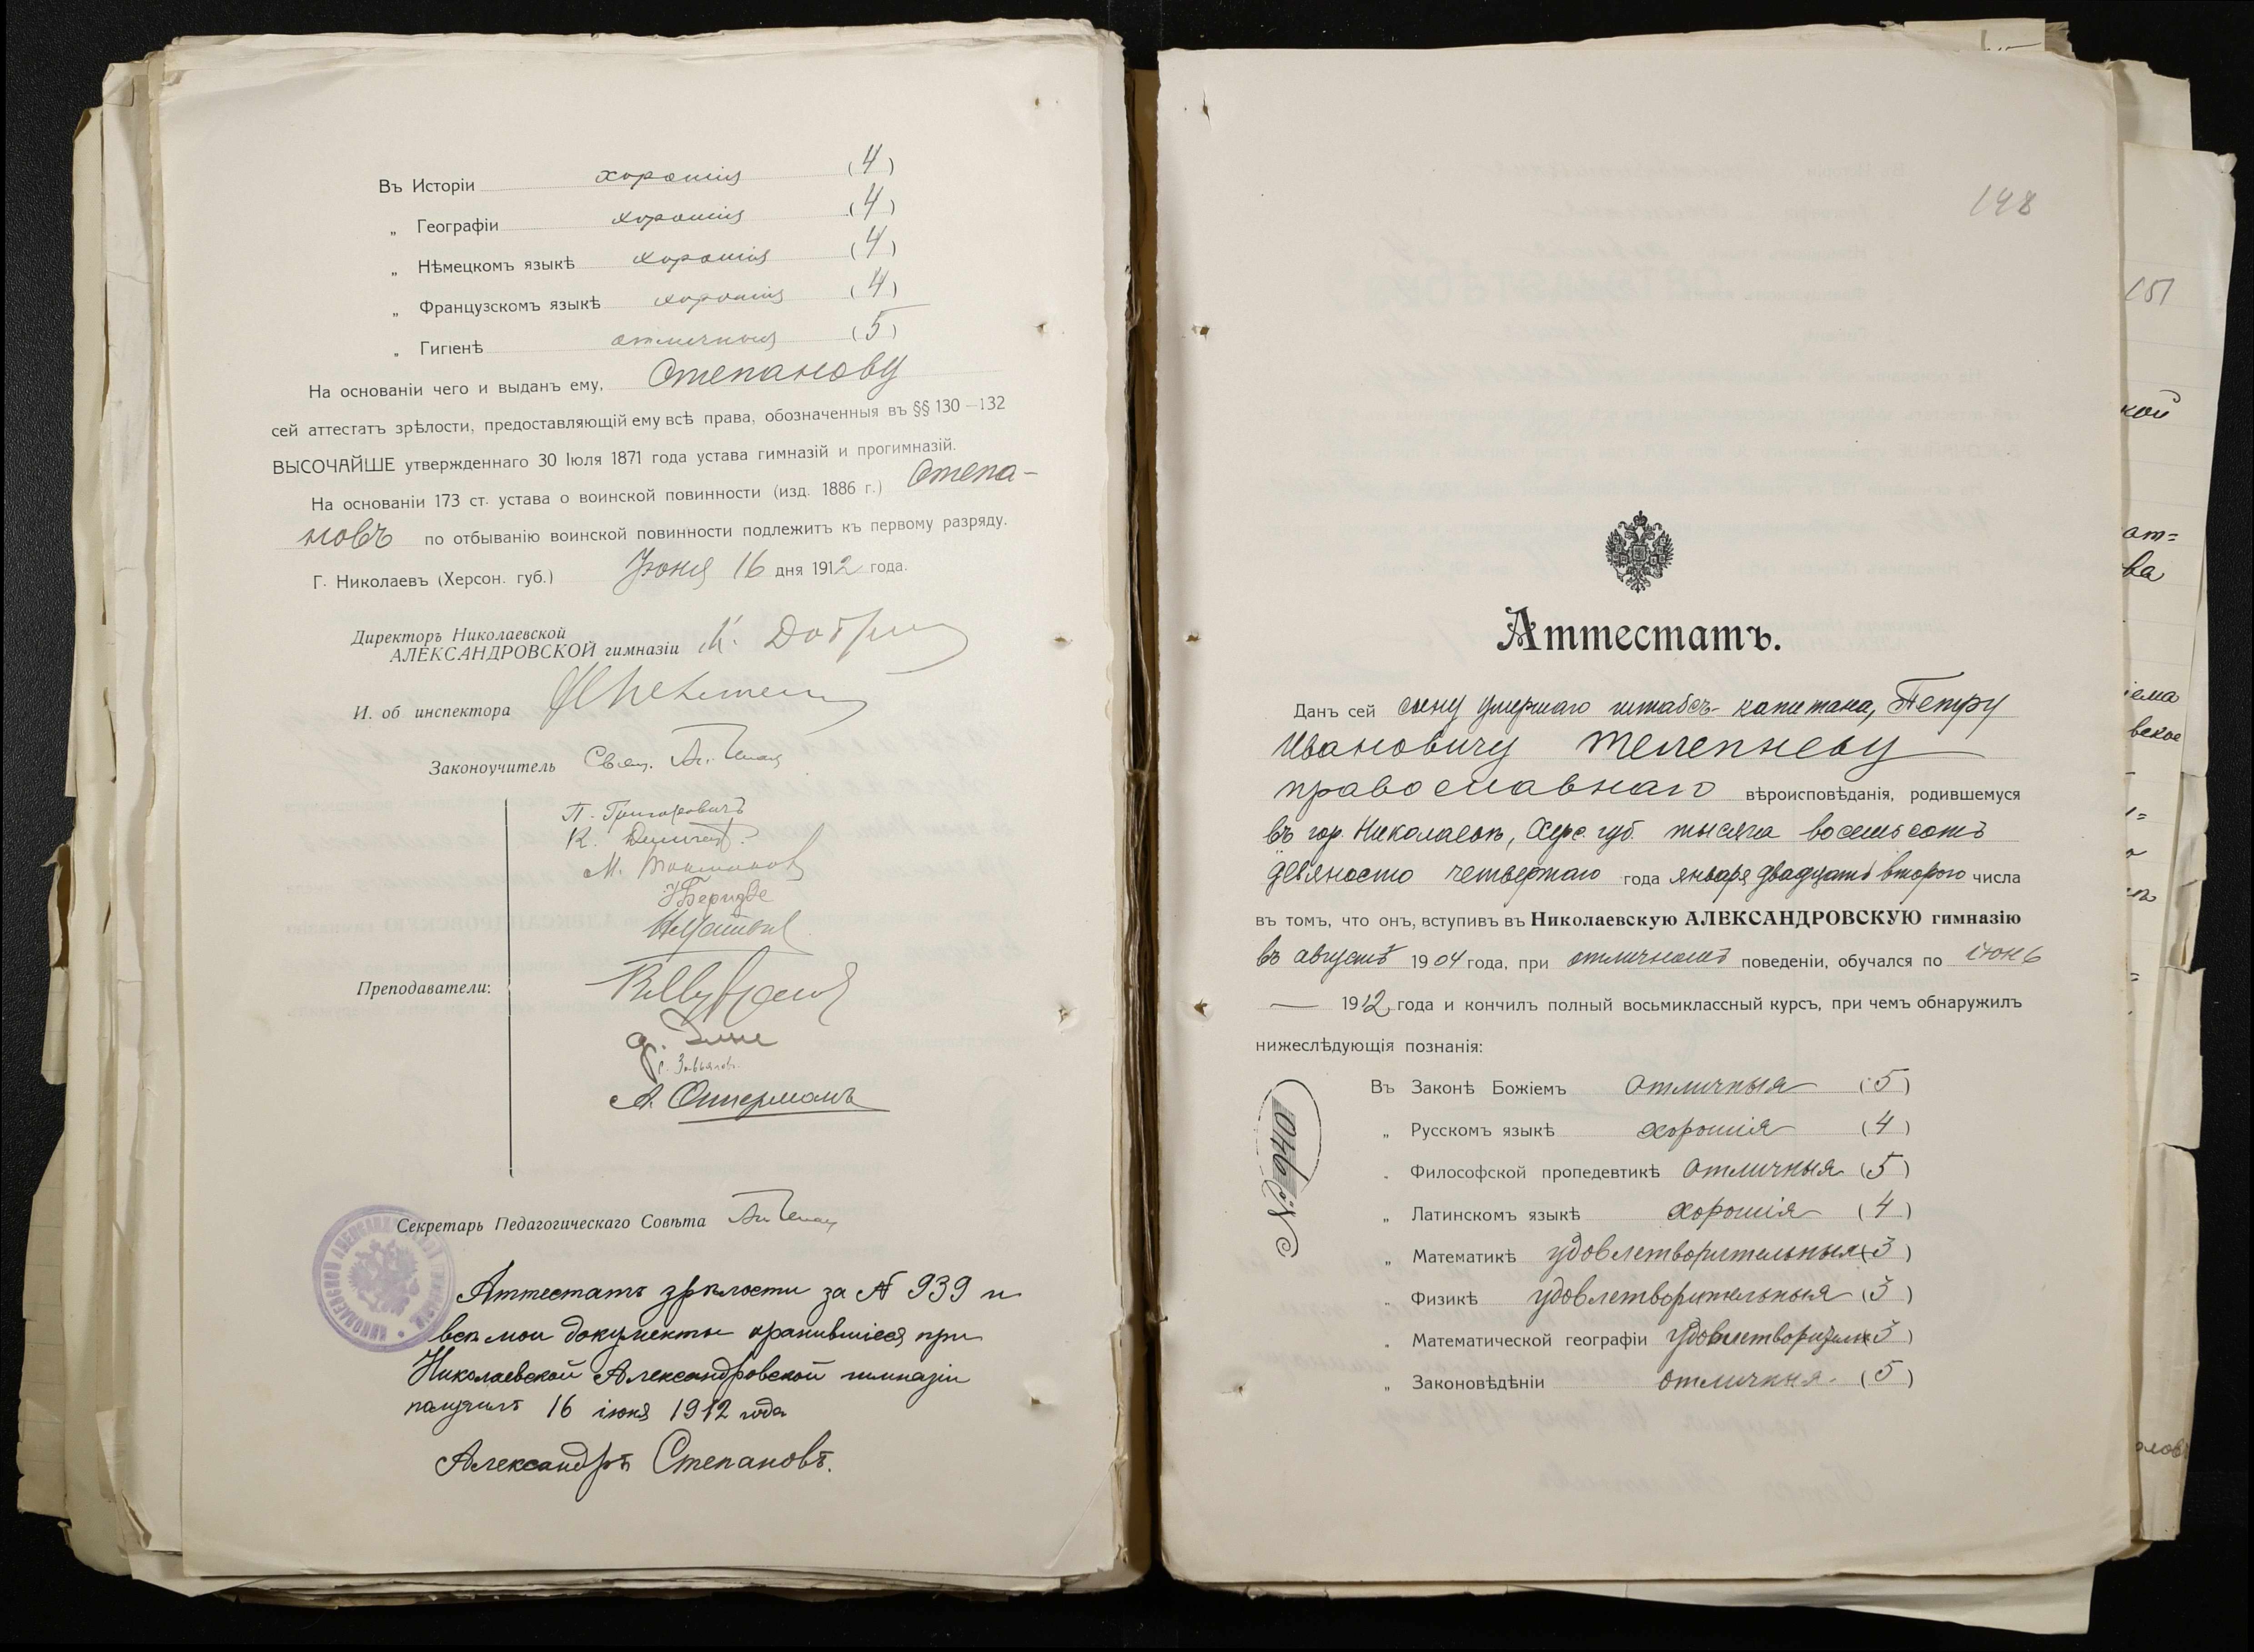 Въ Исторіи хорошія (4)
„ Географіи хорошія (4)
„ Нѣмецкомъ языкѣ хорошія (4)
„ Французскомъ языкѣ хорошія (4)
„ Гигіенѣ отличныя (5)
На основаніи чего и выданъ ему, Степанову
сей аттестатъ зрѣлости, предоставляющій ему всѣ права, обозначенныя въ §§ 130—132
ВЫСОЧАЙШЕ утвержденнаго 30 Іюля 1871 года устава гимназій и прогимназій.
На основаніи 173 ст. устава о воинской повинности (изд. 1886 г.) Степа-
новъ по отбыванію воинской повинности подлежитъ къ первому разряду.
Г. Николаевъ (Херсон. губ.) Іюня 16 дня 1912 года.
Директоръ Николаевской
АЛЕКСАНДРОВСКОЙ гимназіи К.
И. об инспектора
Законоучитель Свящ. Ал.
П. Григоровичъ
К.
М.
Преподаватели:
А. Оттерманъ
Секретарь Педагогическаго Совѣта Ал.
Аттестатъ зрѣлости за № 939 и
всѣ мои документы хранившіеся при
Николаевской Александровской гимназіи
получилъ 16 іюня 1912 года
Александръ Степановъ.
148
Аттестатъ.
Данъ сей сыну умершаго штабсъ-капитана, Петру
Ивановичу Телепневу
православнаго вѣроисповѣданія, родившемуся
въ гор. Николаевѣ, Херс. губ. тысяча восемьсотъ
девяносто четвертаго года января двадцать второго числа
въ томъ, что онъ, вступивъ въ Николаевскую АЛЕКСАНДРОВСКУЮ гимназію
въ августѣ 1904 года, при отличномъ поведеніи, обучался по іюнь
— 1912 года и кончилъ полный восьмиклассный курсъ, при чемъ обнаружилъ
нижеслѣдующія познанія:
Въ Законѣ Божіемъ отличныя (5)
„ Русскомъ языкѣ хорошія (4)
„ Философской пропедевтикѣ отличныя (5)
„ Латинскомъ языкѣ хорошія (4)
„ Математикѣ удовлетворительныя (3)
„ Физикѣ удовлетворительныя (3)
„ Математической географіи удовлетворительн (3)
„ Законовѣдѣніи отличныя (5)
№ 940
151
кой
ат=
ва